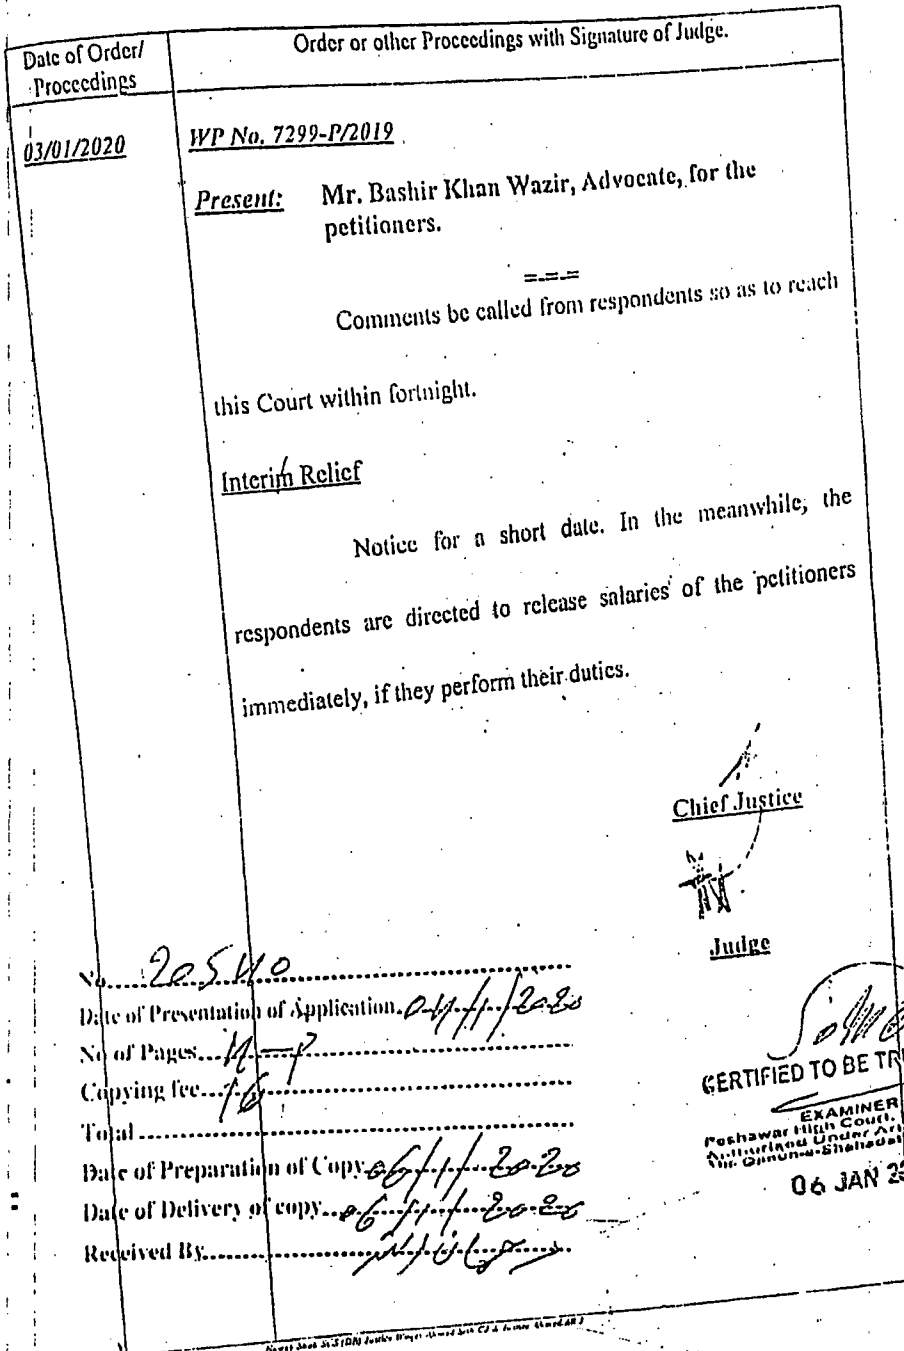 Date of Order/
Proceedings
Order or other Proceedings with Signature of Judge.
03/01/2020
WP No. 7299-P/2019
Present: Mr. Bashir Khan Wazir, Advocate, for the
petitioners.
=-=-=
Comments be called from respondents so as to reach
this Court within fortnight.
Interim Relief
Notice for a short date. In the meanwhile, the
respondents are directed to release salaries of the petitioners
immediately, if they perform their duties.
Chief Justice
Judge
No. 20540
Date of Presentation of Application. 04/1/2020
No of Pages 4-P
Copying fee 16
Total
Date of Preparation of Copy 06/1/2020
Date of Delivery of copy 06/1/2020
Received By
CERTIFIED TO BE TR
EXAMINER
Peshawar High Court,
Authorised Under Art
The Qanun-e-Shahadat
06 JAN 2